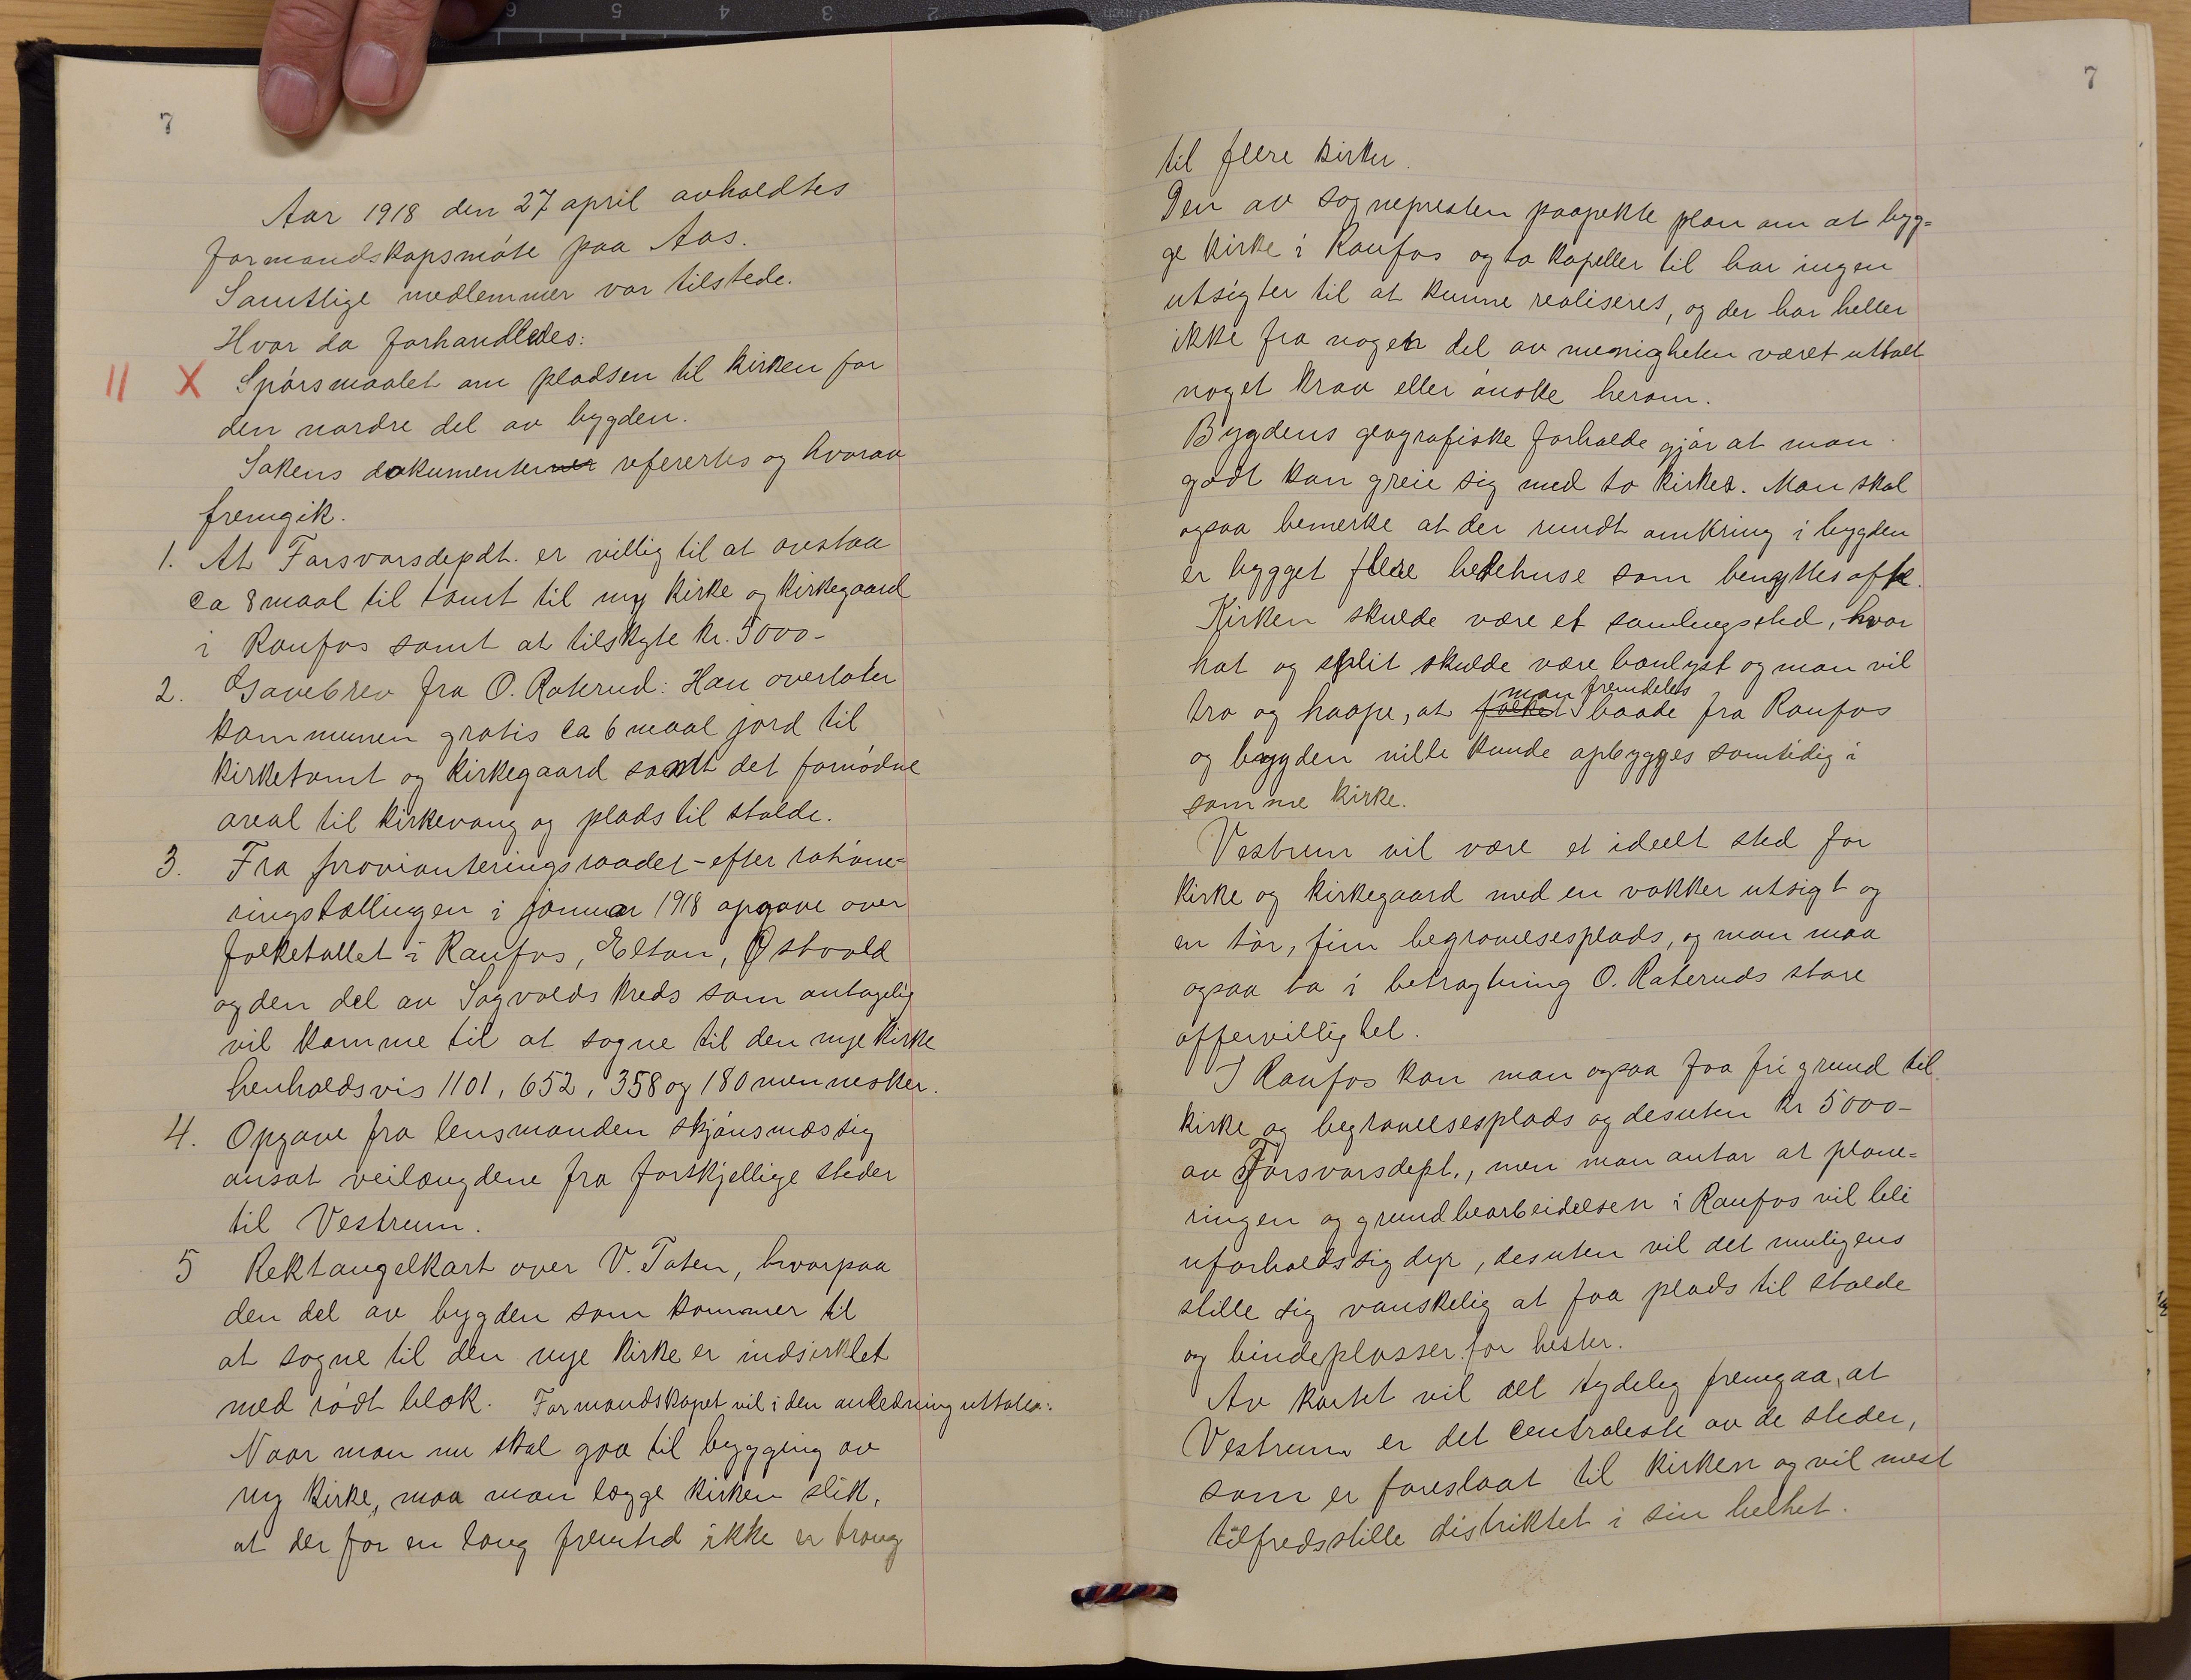 7
Aar 1918 den 27 april avholdtes
formandskapsmöte paa Aas.
Samtlige medlemmer var tilstede.
Hvor da forhandledes:
11 X Spörsmaalet om pladsen til kirken for
den nordre del av bygden.
Sakens dokumenterner referertes og hvorav
fremgik.
1. At Forsvarsdepdt. er villig til at avstaa
ca 8 maal til tomt til ny kirke og kirkegaard
i Raufos samt at tilskyte kr. 5000-
2. Gavebrev fra O. Raterud: Han overlater
kommunen gratis ca 6 maal jord til
kirketomt og kirkegaard samt det fornödne
areal til kirkevang og plads til stalde.
3. Fra provianteringsraadet - efter ratione-
ringstællingen i januar 1918 opgave over
folketallet i Raufos, Elton, Østvold
og den del av Sogvolds kreds som antagelig
vil komme til at sogne til den nye kirke
henholdsvis 1101, 652, 358 og 180 mennesker.
4. Opgave fra lensmanden skjönsmæssig
ansat veilængdene fra forskjellige steder
til Vestrum.
5 Rektangelkart over V. Toten, hvorpaa
den del av bygden som kommer til
at sogne til den nye kirke er indsirklet
med rödt blæk. Formandskapet vil i den anledning uttale:
Naar man nu skal gaa til bygging av
ny kirke, maa man lægge kirken slik,
at der for en lang fremtid ikke er trang
7
til flere kirker.
Den av sognepresten paapekte plan om at byg=
ge kirke i Raufos og to kapeller til har ingen
utsigter til at kunne realiseres, og der har heller
ikke fra nogen del av menigheten været uttalt
noget krav eller önske herom.
Bygdens geografiske forholde gjör at man
godt kan greie sig med to kirker. Man skal
ogsaa bemerke at der rundt omkring i bygden
er bygget flere bedehuse som benyttes ofte.
Kirken skulde være et samlingssted, hvor
hat og split skulde være banlyst og man vil
man fremdeles
tro og haape, at folket baade fra Raufos
og bygden vilde kunde opbygges samtidig i
samme kirke.
Vestrum vil være et ideelt sted for
kirke og kirkegaard med en vakker utsigt og
en tör, fin begravelsesplads, og man maa
ogsaa ta i betragtning O. Rateruds store
offervillighet.
I Raufos kan man ogsaa faa fri grund til
kirke og begravelsesplads og desuten kr 5000-
av Forsvarsdept., men man antar at plane=
ringen og grundbearbeidelsen i Raufos vil bli
uforholdssig dyr, desuten vil det muligens
stille sig vanskelig at faa plads til stalde
og bindeplasser for hester.
Av kartet vil det tydelig fremgaa, at
Vestrum er det centraleste av de steder,
som er foreslaat til kirken og vil mest
tilfredsstille distriktet i sin helhet.